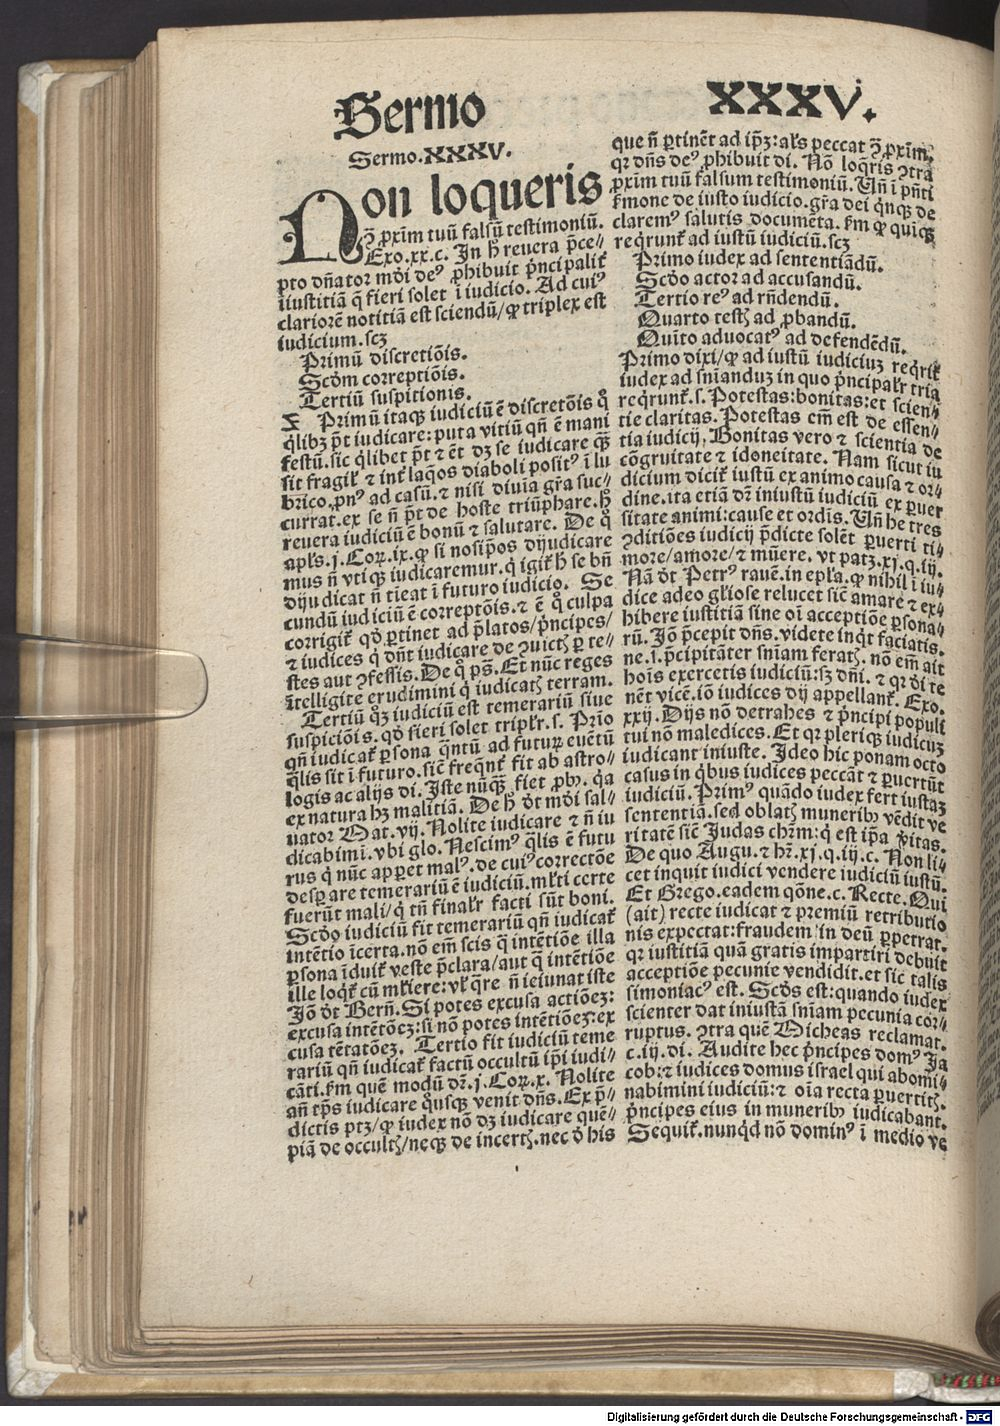 Sermo
XXXV.
Sermo.XXXV.
Non loqueris
ꝯ̃ ꝓxim̃ tuũ falsũ testimoniũ.
Exo.xx.c. In h̃ reuera p̃ce⸗
pto dñator mũdi deꝰ ꝓhibuit p̃ncipaliť
iniustitiã q̃ fieri solet ĩ iudicio. Ad cuiꝰ
clariorẽ notitiã est sciendũ/ ꝙ triplex est
iudicium.scꝫ
Primũ discretiõis.
Scðm correptiõis.
Tertiũ suspitionis.
Primũ itaqꝫ iudiciũ ẽ discretõis q̊
q̃libꝫ p̃t iudicare: puta vitiũ qñ ẽ mani
festũ.sic q̃libet p̃t ⁊ ẽt dꝫ se iudicare qꝫ̃
sit fragiľ ⁊ inť laq̃os diaboli positꝰ ĩ lu
brico, ꝓnꝰ ad casũ.⁊ nisi diuĩa gr̃a suc⸗
currat.ex se ñ p̃t de hoste triũphare.h̃
reuera iudiciũ ẽ bonũ ⁊ salutare. De q̊
apl̃s.j.Coꝝ.ix.ꝙ si nosip̃os dijudicare
mus ñ vtiqꝫ iudicaremur.q̃ igiť h̃ se bñ
dijudicat ñ tĩeat ĩ futuro iudicio. Se
cundũ iudiciũ ẽ correptõis.⁊ ẽ q̊ culpa
corrigiť qð ꝑtinet ad p̃latos/p̃ncipes/
⁊ iudices q̃ dñt iudicare de ꝯuictꝭ ꝑ te⸗
stes aut ꝯfessis. De q̊ ps̃. Et nũc reges
ĩtelligite erudimini q̃ iudicatꝭ terram.
Tertiũ qꝫ iudiciũ est temerariũ siue
suspiciõis.qð fieri solet tripľr.s. Prio
qñ iudicať ꝑsona q̃ntũ ad futuꝝ euẽtũ
q̃lis sit ĩ futuro.sic̃ freq̃nť fit ab astro⸗
logis ac alijs di. Iste nũqꝫ̃ fiet ꝓbꝰ. q̃a
ex natura hꝫ malitiã. De h̃ ðt mũdi sal⸗
uator Mat.vij. Nolite iudicare ⁊ ñ iu
dicabimĩ.vbi glo. Nescimꝰ q̃lis ẽ futu
rus q̃ nũc apparet malꝰ. de cuiꝰ correctõe
desꝑare temerariũ ẽ iudiciũ.ml̃ti certe
fuerũt mali/ q̃ tñ finaľr facti sũt boni.
Scðo iudiciũ fit temerariũ qñ iudicať
intẽtio ĩcerta.nõ em̃ scis q̃ intẽtiõe illa
ꝑsona ĩduiť veste p̃clara/aut q̃ intẽtiõe
ille loq̃ť cũ ml̃iere: vľ q̃re ñ ieiunat iste
Jõ ðt Berñ. Si potes excusa actiõeꝫ:
excusa intẽtõeꝫ:si nõ potes intẽtiõeꝫ:ex
cusa tẽtatõeꝫ. Tertio fit iudiciũ teme
rariũ qñ iudicať factũ occultũ ip̃i iudi⸗
cãti.ẜm quẽ modũ dꝛ̃.j.Coꝝ.x. Nolite
añ tp̃s iudicare q̊usqꝫ venit dñs. Ex p̃⸗
dictis ptꝫ/ꝙ iudex nõ dꝫ iudicare quẽ⸗
piã de occultꝭ/neqꝫ de incertꝭ.nec ð his
que ñ ꝑtinẽt ad ip̃ꝫ:aľs peccat ꝯ̃ ꝓxim̃.
qꝛ dñs deꝰ ꝓhibuit di. Nõ loq̃ris ꝯtra
ꝓxim̃ tuũ falsum testimoniũ. Uñ ĩ pñti
ẜmone de iusto iudicio.gr̃a dei q̃nqꝫ de
claremꝰ salutis documẽta. ẜm ꝙ quiqꝫ
req̃runť ad iustũ iudiciũ.scꝫ
Primo iudex ad sententiãdũ.
Scðo actor ad accusandũ.
Tertio reꝰ ad rñdendũ.
Quarto testꝭ ad ꝓbandũ.
Quĩto aduocatꝰ ad defendẽdũ.
Primo dixi/ꝙ ad iustũ iudiciuꝫ req̃riť
iudex ad sñianduꝫ in quo p̃ncipaľr tria
req̃runť.s. Potestas:bonitas:et scien⸗
tie claritas. Potestas em̃ est de essen⸗
tia iudicij, Bonitas vero ⁊ scientia de
cõgruitate ⁊ idoneitate. Nam sicut iu
dicium diciť iustũ ex animo causa ⁊ or⸗
dine.ita etiã dꝛ̃ iniustũ iudiciũ ex ꝑuer
sitate animi:cause et ordĩs. Uñ he tres
ꝯditiões iudicij p̃dicte solẽt ꝑuerti ti⸗
more/amore/⁊ mũere. vt patꝫ.xj.q.iij.
Nã ðt Petrꝰ rauẽ.in epľa.ꝙ nihil ĩ iu⸗
dice adeo gľiose relucet sic̃ amare ⁊ ex⸗
hibere iustitiã sine oĩ acceptiõe ꝑsona⸗
rũ. Jõ p̃cepit dñs. videte inq̃t faciatis.
ne.i.p̃cipitãter sñiam feratꝭ. nõ em̃ ait
hoĩs exercetis iudiciũ:sꝫ dñi. ⁊ qꝛ ði te
nẽt vicẽ.iõ iudices dij appellanť. Exo.
xxij. Dijs nõ detrahes ⁊ p̃ncipi populi
tui nõ maledices. Et qꝛ pleriqꝫ iudicuꝫ
iudicant iniuste. Ideo hic ponam octo
casus in q̃bus iudices peccãt ⁊ ꝑuertũt
iudiciũ. Primꝰ quãdo iudex fert iustaꝫ
sententiã.sed oblatꝭ muneribꝰ vẽdit ve
ritatẽ sic̃ Judas chꝛ̃m:q̃ est ip̃a v̾itas.
De quo Augu.⁊ hꝛ̃.xj.q.iij.c. Non li⸗
cet inquit iudici vendere iudiciũ iustũ.
Et Grego.eadem qõne.c. Recte. Qui
(ait) recte iudicat ⁊ premiũ retributio
nis expectat:fraudem in deũ ꝑpetrat.
qꝛ iustitiã quã gratis impartiri debuit
acceptiõe pecunie vendidit.et sic talis
simoniacꝰ est. Scðs est:quando iudex
scienter dat iniustã sñiam pecunia cor⸗
ruptus. ꝯtra quẽ Micheas reclamat.
c.iij.di. Audite hec p̃ncipes domꝰ Ja
cob:⁊ iudices domus israel qui abomi⸗
nabimini iudiciũ:⁊ oĩa recta ꝑuertitꝭ.
p̃ncipes eius in muneribꝰ iudicabant.
Sequiť.nunq̃d nõ dominꝰ ĩ medio ve
Digitalisierung gefördert durch die Deutsche Forschungsgemeinschaft - DFG